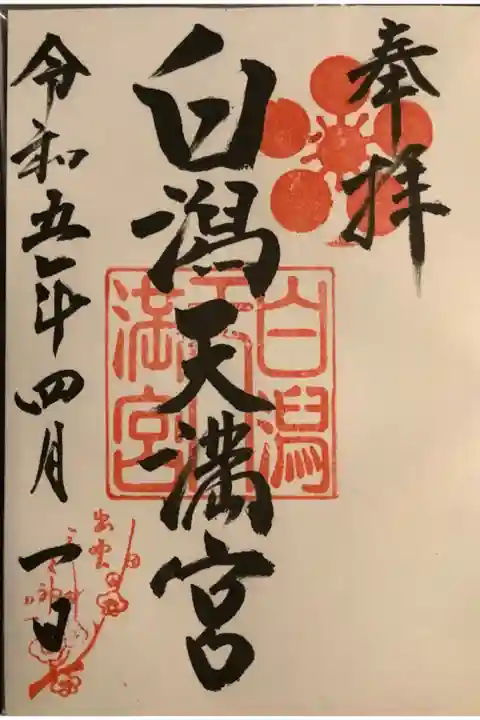 奉拝
白潟天満宮
白潟天満宮
令和五年四月一日
出雲